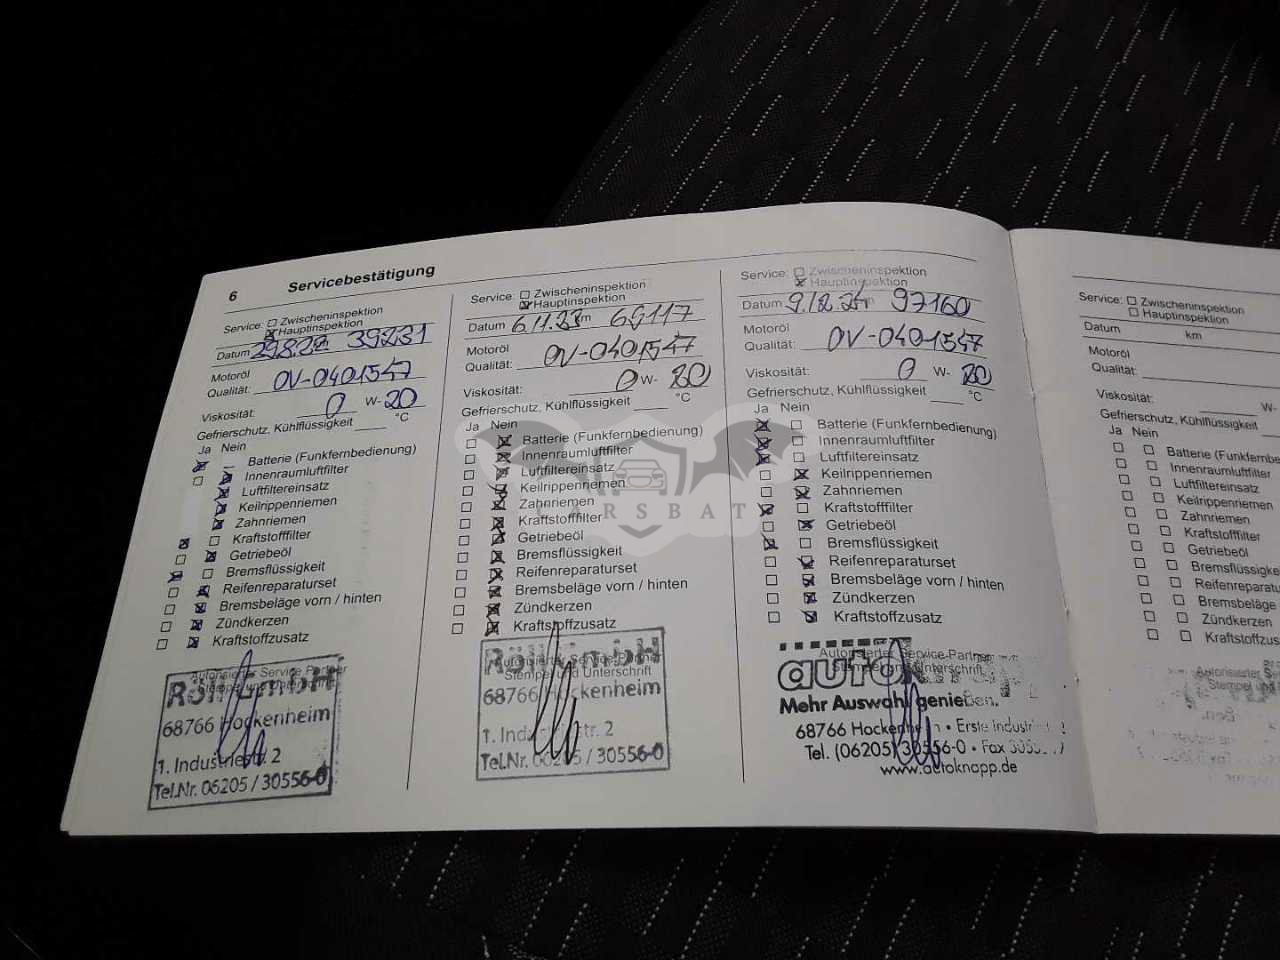 6
Servicebestätigung
Service: Zwischeninspektion
Hauptinspektion
Datum 29.8.22 39231
Motoröl
Qualität: OV-0401547
Viskosität: 0 W- 20
Gefrierschutz, Kühlflüssigkeit °C
Ja Nein
Batterie (Funkfernbedienung)
Innenraumluftfilter
Luftfiltereinsatz
Keilrippenriemen
Zahnriemen
Kraftstofffilter
Getriebeöl
Bremsflüssigkeit
Reifenreparaturset
Bremsbeläge vorn / hinten
Zündkerzen
Kraftstoffzusatz
Autorisierter Service Partner
68766 Hockenheim
1. Industriestr. 2
Tel.Nr. 06205 / 30556-0
Service: Zwischeninspektion
Hauptinspektion
Datum 6.11.23 km 69117
Motoröl
Qualität: OV-0401547
Viskosität: 0 W- 20
Gefrierschutz, Kühlflüssigkeit °C
Ja Nein
Batterie (Funkfernbedienung)
Innenraumluftfilter
Luftfiltereinsatz
Keilrippenriemen
Zahnriemen
Kraftstofffilter
Getriebeöl
Bremsflüssigkeit
Reifenreparaturset
Bremsbeläge vorn / hinten
Zündkerzen
Kraftstoffzusatz
Autorisierter Service-Partner
Stempel und Unterschrift
68766 Hockenheim
1. Industriestr. 2
Tel.Nr. 06205 / 30556-0
Service: Zwischeninspektion
Hauptinspektion
Datum 9.12.24 km 97160
Motoröl
Qualität: OV-0401547
Viskosität: 0 W- 20
Gefrierschutz, Kühlflüssigkeit °C
Ja Nein
Batterie (Funkfernbedienung)
Innenraumluftfilter
Luftfiltereinsatz
Keilrippenriemen
Zahnriemen
Kraftstofffilter
Getriebeöl
Bremsflüssigkeit
Reifenreparaturset
Bremsbeläge vorn / hinten
Zündkerzen
Kraftstoffzusatz
Autorisierter Service-Partner
Stempel und Unterschrift
auto
Mehr Auswahl genießen.
68766 Hockenheim • Erste Industriestr.
Tel. (06205) 30556-0 • Fax
www.autoknapp.de
Service: Zwischeninspektion
Hauptinspektion
Datum km
Motoröl
Qualität:
Viskosität: W-
Gefrierschutz, Kühlflüssig
Ja Nein
Batterie (Funkfernbe
Innenraumluftfilter
Luftfiltereinsatz
Keilrippenriemen
Zahnriemen
Kraftstofffilter
Getriebeöl
Bremsflüssigke
Reifenreparatu
Bremsbeläge
Zündkerzen
Kraftstoffzus
Autorisierter
Stempel
CARSBAT